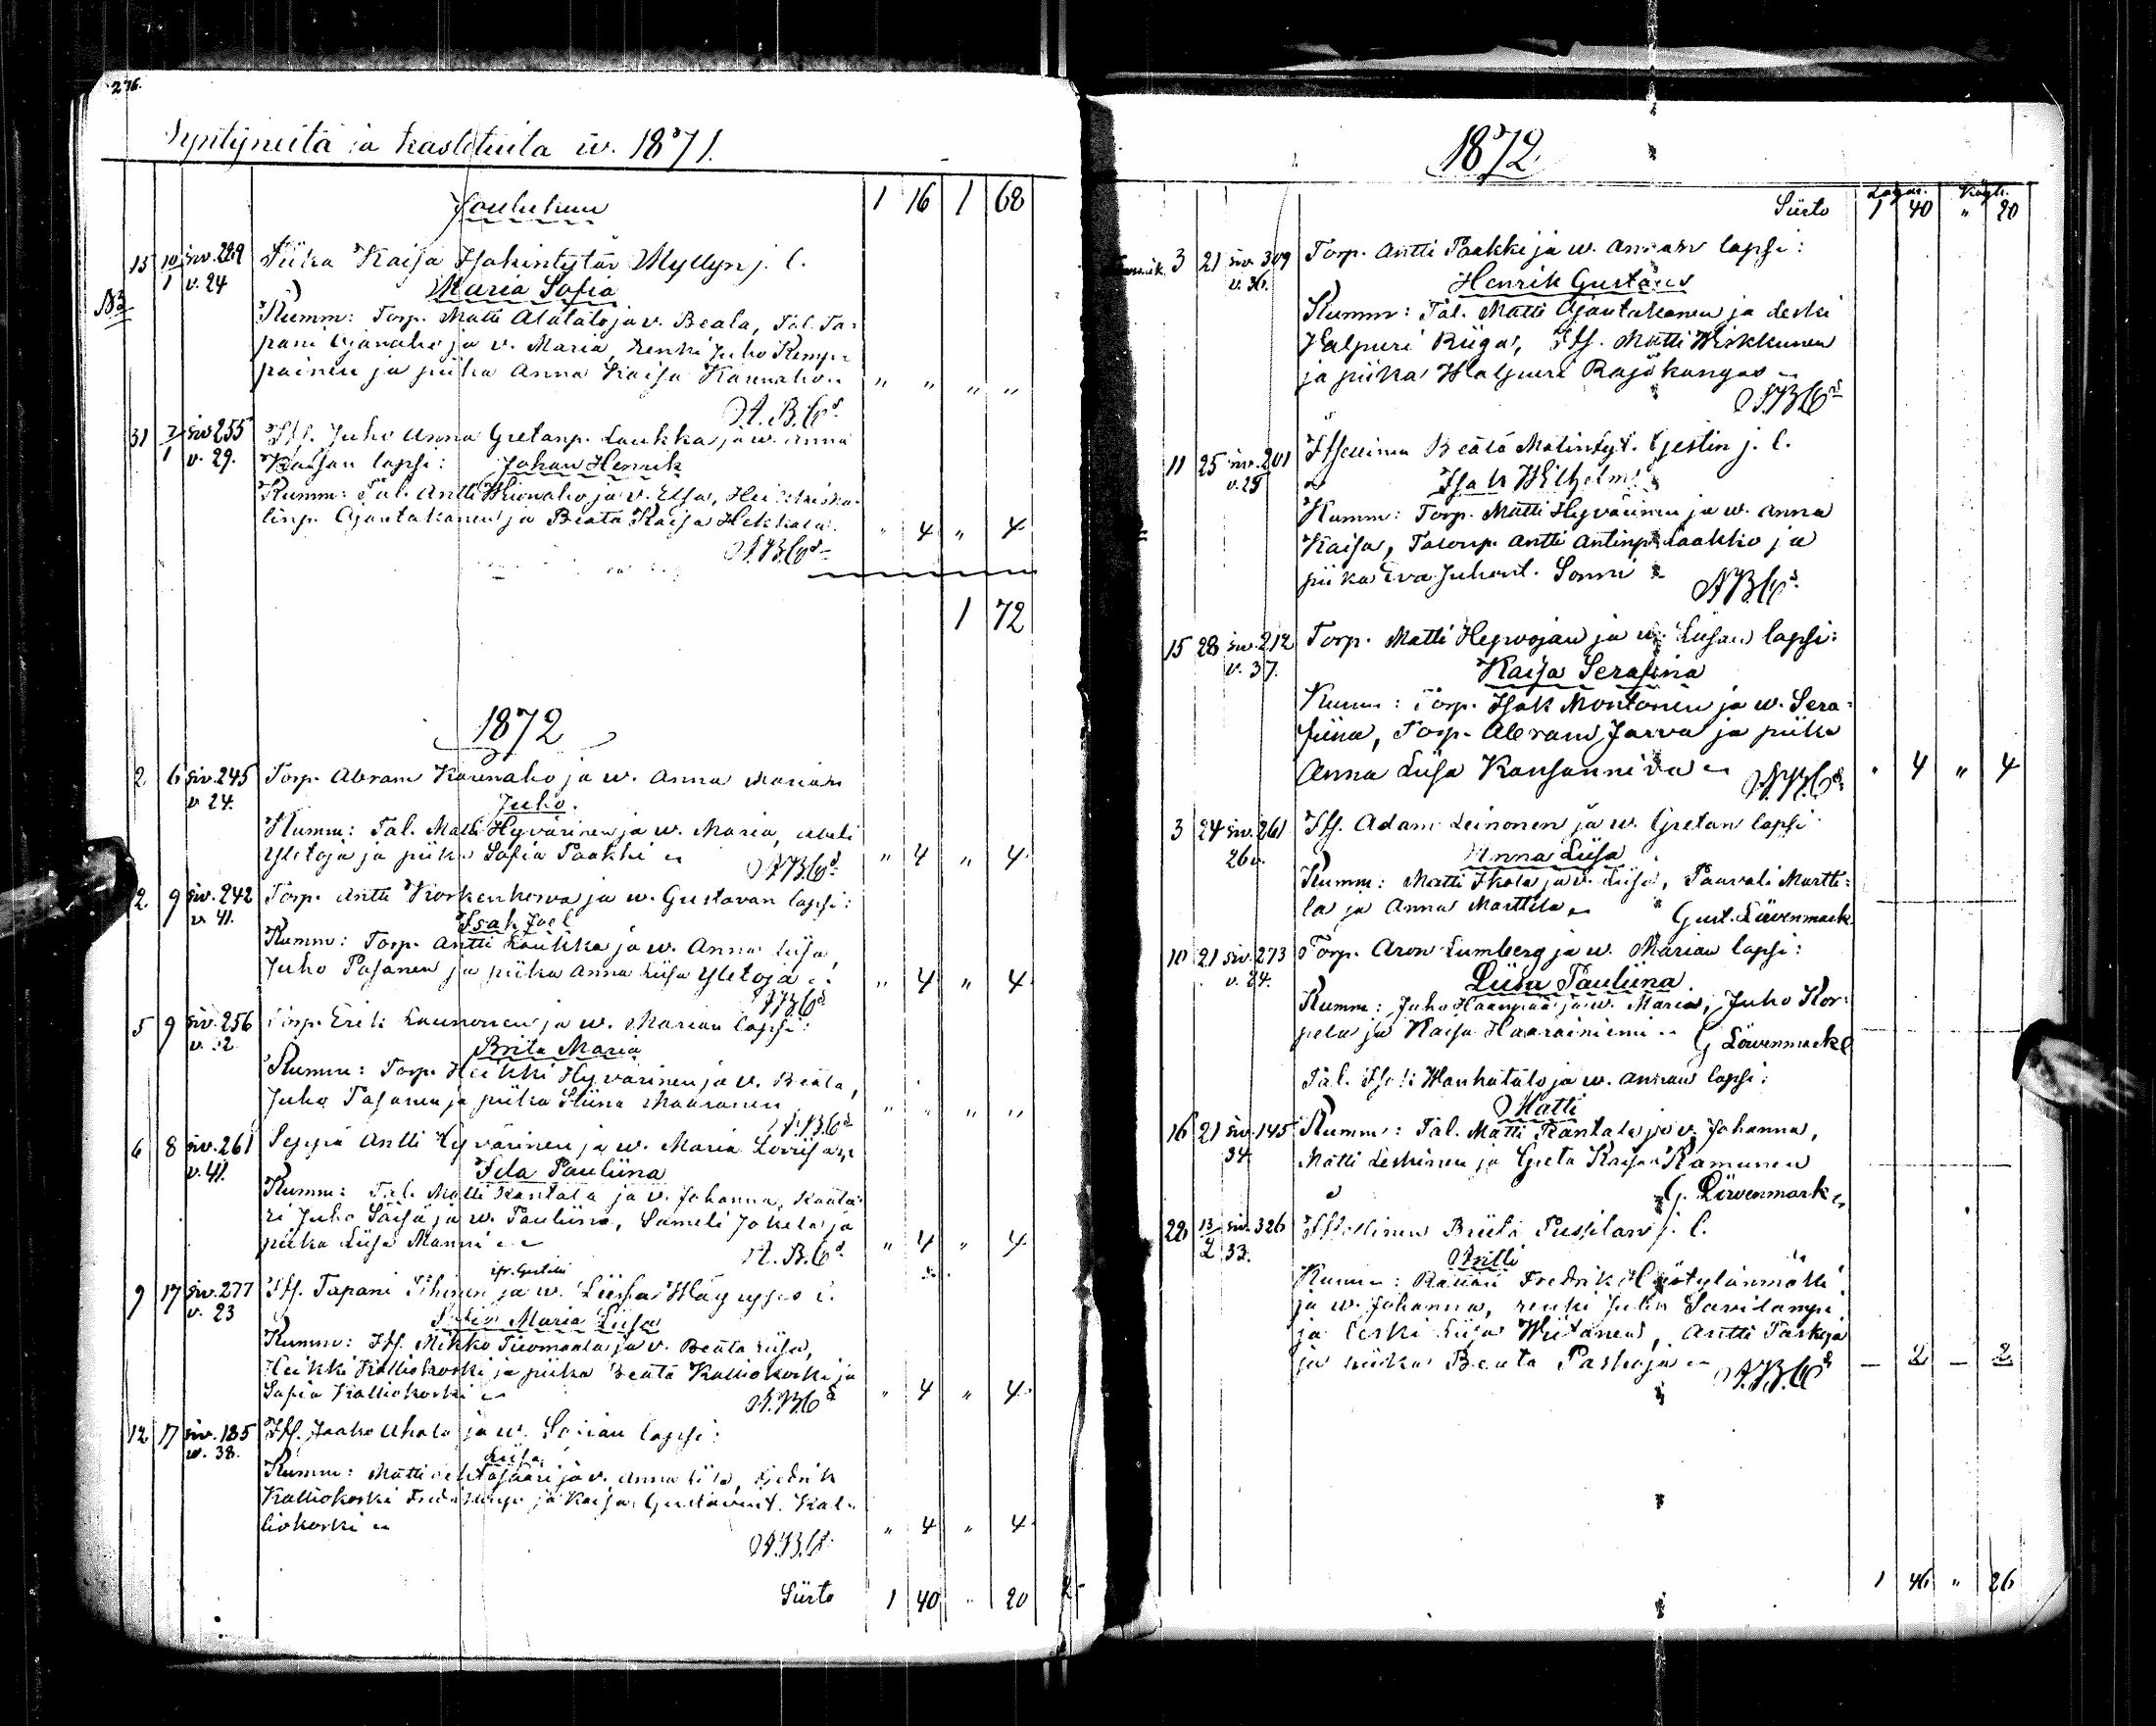 276.
Syntyneitä ja kastetuita w. 1871.
Joulukuu 1 16 1 68
13 10/1 siv. 229 v. 24 Piika Kaisa Isakintytär Myllyn j. l.
Maria Sofia
Kumm: Torp. Matti Alatalo ja v. Beata, Tal. Ta-
pani Ojanaho ja v. Maria, renki Juho Kemp-
painen ja piika Anna Kaisa Kaunaho " " " "
A.B.Cs
31 7/1 siv 255 v. 29. Its. Juho Anna Gretanp. Laukka ja w. Anna
Kaisan lapsi: Johan Henrik
Kumm: Tal. Antti ja v. Elsa, Hei
linp. Ajantakanen ja Beata Kaisa Hekkala. " 4 " 4
A.B.Cs
1 72
1872
2 6 siv. 245 v 24. Torp. Abram Kaunaho ja w. Anna Marian
Juho.
Kumm: Tal. Matti Hyvärinen ja w. Maria,
Yletoja ja piika Sofia Paakki " 4 " 4
A.B.Cs
2 9 siv. 242 v. 41. Torp. Antti Korkenkowa ja w. Gustavan lapsi:
Isak Joel
Kumm: Torp. Antti Laukka ja w. Anna Liisa,
Juho Pasanen ja piika Anna Liisa Yletoja " 4 " 4
A.B.Cs
5 9 siv. 256 Torp. Erik Launonen ja w. Marian lapsi:
Brita Maria
Kumm: Torp. Heikki Hyvärinen ja v. Beata,
Juho Pasanen ja piika Stiina " " " "
A.B.Cs
6 8 siv. 261 v. 41. Seppä Antti Hyvärinen ja w. Maria Lovisan
Ida Pauliina
Kumm: Tal. Matti Rantala ja v. Johanna,
ri Juho Säisä ja w. Pauliina, Sameli Jokela ja
piika Liisa Manni " 4 " 4
A.B.Cs
9 17 siv. 277 v. 23 Its. Tapani Tihinen ja w. Liisa
Maria Liisa
Kumm: Its. Mikko Tiermaala ja v. Beata Liisa,
Heikki Kalliokoski ja piika Beata Kalliokoski ja
Sofia Kalliokoski " 4 " 4
A.B.Cs
12 17 siv. 185 w. 38. Its. Jaako Ahola ja w. Sofian lapsi:
Liisa
Kumm: Matti ja v. Anna Liisa, Fredrik
Kalliokoski ja Kaisa Gustavint. Kal-
liokoski " 4 " 4
A.B.Cs
Siirto 1 40 " 20
1872
Siirto 1 40 " 20
3 21 siv. 309 v. 36. Torp. Antti Paakki ja w. Annan lapsi:
Henrik Gustavus
Kumm: Tal. Matti Ajantakanen ja leski
Valpuri Riiga, Its. Matti Wiskkunen
ja piika Walpuri Rajokangas
A.B.Cs
11 25 siv. 201 v. 29 Itsellinen Beata Matintyt. Gestin j. l.
Isak Wilhelm
Kumm: Torp. Matti Hyvärinen ja w. Anna
Kaisa, Talonp. Antti Antinp. Laakko ja
piika Eva Juhont. Sonni
A.B.Cs
15 28 siv. 212 v. 37. Torp. Matti Hepoojan ja w. Liisan lapsi:
Kaisa Serafina
Kumm: Torp. Isak Montonen ja w. Sera-
fiina, Torp. Abram Jarva ja piika
Anna Liisa Kansanniva " 4 " 4
A.B.Cs
3 24 siv. 261 26 v. Its. Adam Leinonen ja w. Gretan lapsi
Anna Liisa
Kumm: Matti Ikola ja v. Liisa, Paavali Martti-
la ja Anna Marttila
Gust. Löwenmark
10 21 siv. 273 v. 24. Torp. Aron Lumberg ja w. Marian lapsi:
Liisa Pauliina.
Kumm: Juho Haanpää ja w. Maria, Juho Kor-
pela ja Kaisa Haarainiemi
G Löwenmark
Tal. Isak Wanhatalo ja w. Annan lapsi:
Matti
16 21 siv. 145 34. Kumm: Tal. Matti Rantala ja v. Johanna,
Matti Leskinen ja Greta Kaisa Ramunen
G. Löwenmark
22 13/2 siv. 326 33. Itsellinen Briita Pussilan j. l.
Antti
Kumm: Fredrik
ja w. Johanna, renki Juho Savilampi
ja leski Liisa Wiitanen, Antti Paskoja
ja piika Beata Paskoja — 2 — 2
A.B.Cs
1 46 " 26